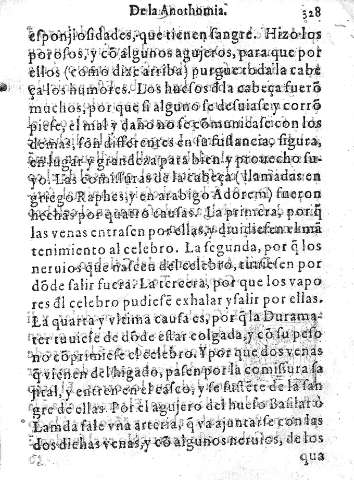 De la Anothomia. 328
esponjiosidades, que tienen sangre. Hizo los
porosos, y cõ algunos agujeros, para que por
ellos (como dixe arriba) purgue toda la cabe
ça los humores. Los huesos dla cabeça fuerõ
muchos, por que si alguno se desuiase y corrõ
piese, el mal y daño no se cõmunicase con los
demas, són differentes en su sustancia, figura,
en lugar y grandeza para bien y prouecho su-
yo. Las comissuras de la cabeça (llamadas en
griego Raphes, y en arabigo Adorem) fueron
hechas por quatro causas. La primera, por q̃
las venas entrasen por ellas, y diuidiesen el mã
tenimiento al celebro. La segunda, por q̃ los
neruios que nascen del celebro, tuuiesen por
dõde salir fuera. La tercera, por que los vapo
res dl celebro pudiese exhalar y salir por ellas.
La quarta y vltima causa es, por q̃ la Durama-
ter tuuiese de dõde estar colgada, y cõ su peso
no cõprimiese el celebro. Y por que dos venas
q̃ vienen del higado, pasen por la comissura sa
gital, y entren en el casco, y se sustẽte de la san
gre de ellas. Por el agujero del hueso Basilar ò
Lamda sale vna arteria, q̃ va ajuntarse con las
dos dichas venas, y cõ algunos neruios, de los
qua